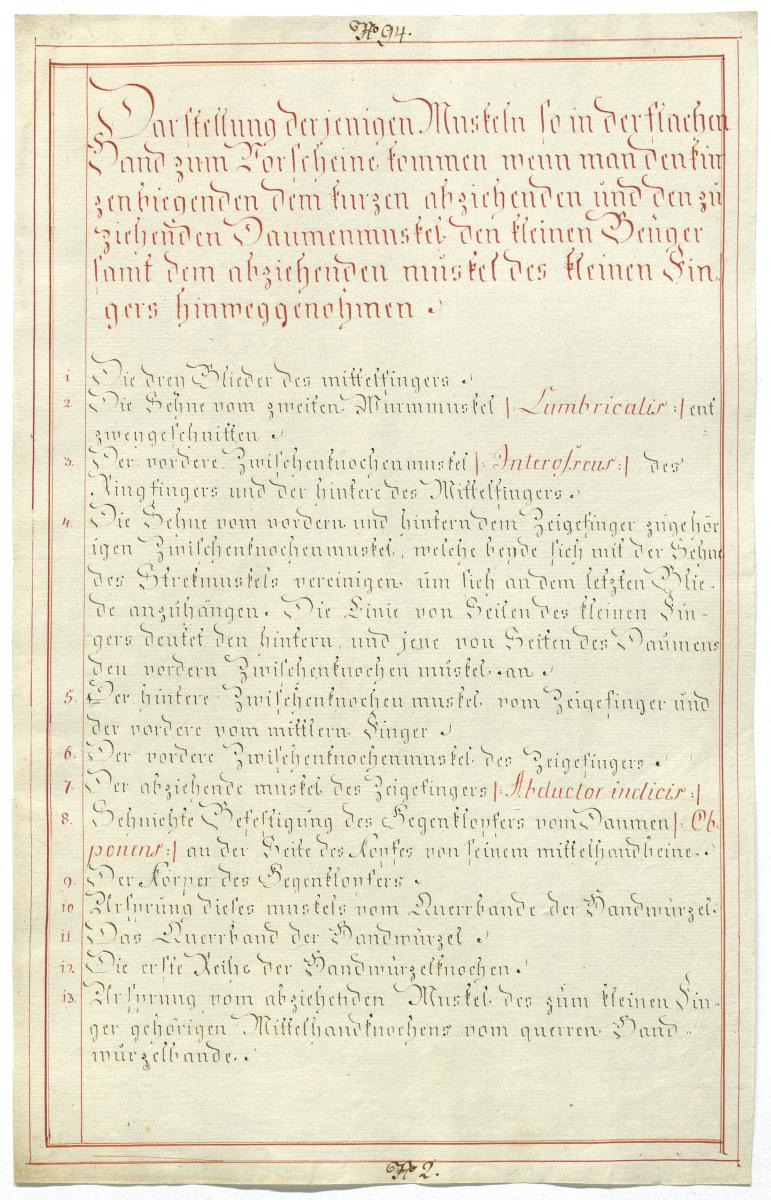 No 94.
Darstellung derjenigen Muskeln so in der flachen
Hand zum Vorscheine kommen wenn man den kür
zenbiegenden dem kurzen abziehenden und den zu
ziehenden Daumenmuskel den kleinen Beuger
samt dem abziehenden muskel des kleinen Fin,
gers hinweggenohmen .
1 Die drey Glieder des mittelfingers .
2. Die Sehne vom zweiten Wurmmuskel |: Lumbricalis :| ent
zweygeschnitten .
3. Der vordere Zwischenknochenmuskel |: Interosseus :| des
Ringfingers und der hintere des Mittelfingers .
4. Die Sehne vom vordern und hintern dem Zeigefinger zugehör
igen Zwischenknochenmuskel, welche beyde sich mit der Sehne
des Strekmuskels vereinigen um sich an dem letzten Glie-
de anzuhängen. Die Linie von Seiten des kleinen Fin-
gers deutet den hintern, und jene von Seiten des Daumens
den vordern Zwischenknochen muskel an .
5. Der hintere Zwischenknochen muskel vom Zeigefinger und
der vordere vom mittlern Finger .
6. Der vordere Zwischenknochenmuskel des Zeigefingers .
7. Der abziehende muskel des Zeigefingers |: Abductor indicis :|
8. Sehnichte Befestigung des Gegenklopfers vom Daumen |: Op-
ponens :| an der Seite des Kopfes von seinem mittelhandbeine .
9. Der Körper des Gegenklopfers .
10 Ursprung dieses muskels vom Querrbande der Handwurzel.
11 Das Querrband der Handwurzel .
12. Die erste Reihe der Handwurzelknochen .
13. Ursprung vom abziehenden Muskel des zum kleinen Fin-
ger gehörigen Mittelhandknochens vom querren Hand-
wurzelbande .
No 2.